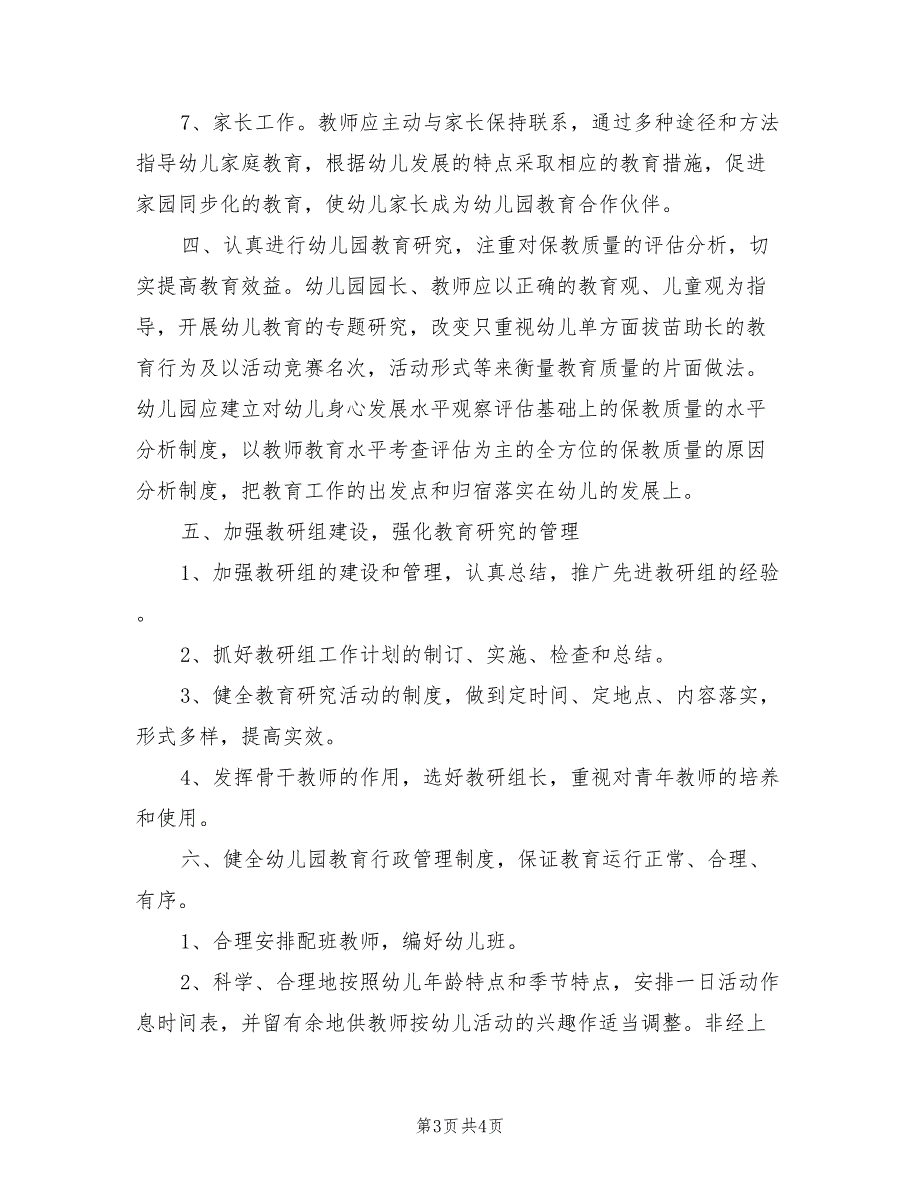 7、家长工作。教师应主动与家长保持联系，通过多种途径和方法
指导幼儿家庭教育，根据幼儿发展的特点采取相应的教育措施，促进
家园同步化的教育，使幼儿家长成为幼儿园教育合作伙伴。
四、认真进行幼儿园教育研究，注重对保教质量的评估分析，切
实提高教育效益。幼儿园园长、教师应以正确的教育观、儿童观为指
导，开展幼儿教育的专题研究，改变只重视幼儿单方面拔苗助长的教
育行为及以活动竞赛名次，活动形式等来衡量教育质量的片面做法。
幼儿园应建立对幼儿身心发展水平观察评估基础上的保教质量的水平
分析制度，以教师教育水平考查评估为主的全方位的保教质量的原因
分析制度，把教育工作的出发点和归宿落实在幼儿的发展上。
五、加强教研组建设，强化教育研究的管理
1、加强教研组的建设和管理，认真总结，推广先进教研组的经验
。
2、抓好教研组工作计划的制订、实施、检查和总结。
3、健全教育研究活动的制度，做到定时间、定地点、内容落实，
形式多样，提高实效。
4、发挥骨干教师的作用，选好教研组长，重视对青年教师的培养
和使用。
六、健全幼儿园教育行政管理制度，保证教育运行正常、合理、
有序。
1、合理安排配班教师，编好幼儿班。
2、科学、合理地按照幼儿年龄特点和季节特点，安排一日活动作
息时间表，并留有余地供教师按幼儿活动的兴趣作适当调整。非经上
第3页共4页